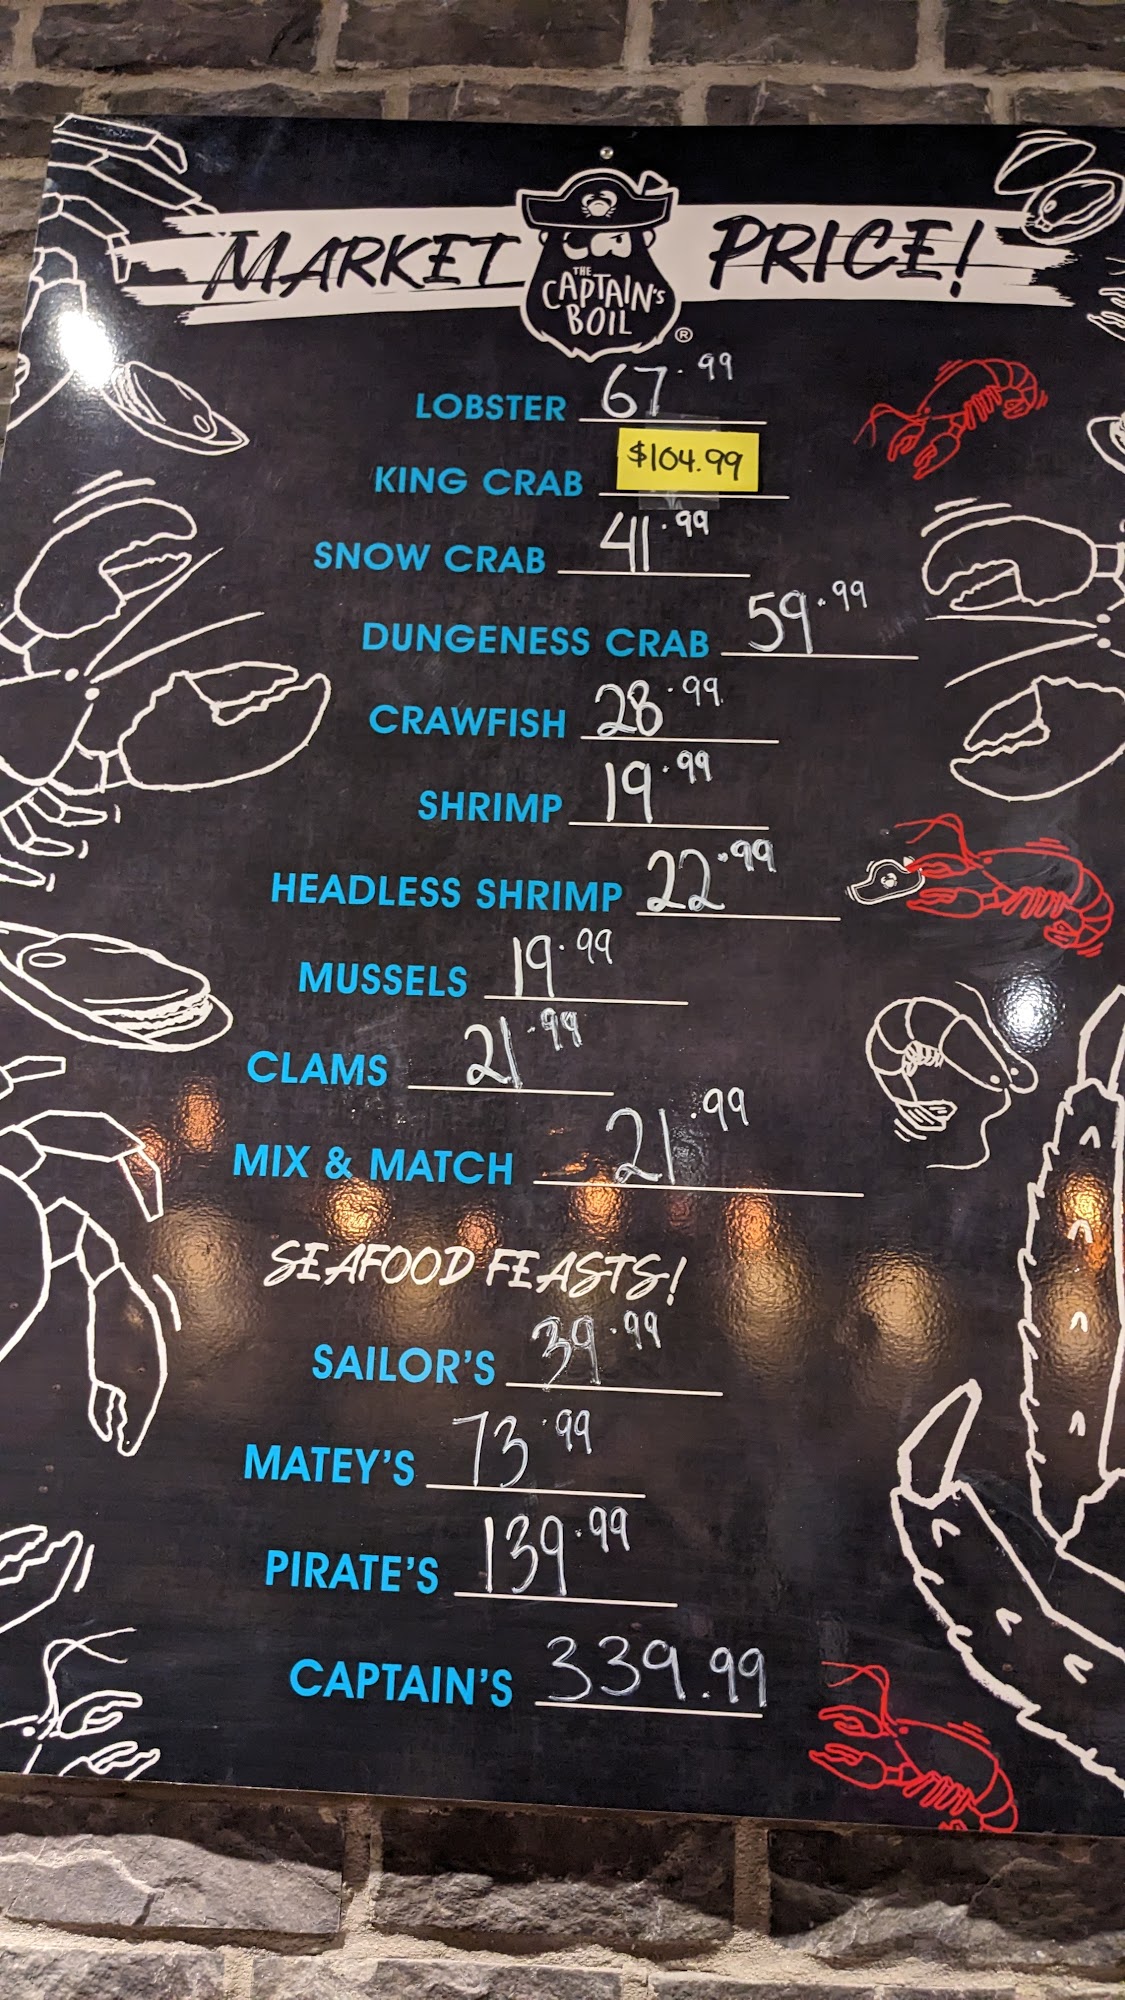 MARKET PRICE!
THE
CAPTAIN'S
BOIL
®
LOBSTER 67.99
KING CRAB $104.99
SNOW CRAB 41.99
DUNGENESS CRAB 59.99
CRAWFISH 28.99
SHRIMP 19.99
HEADLESS SHRIMP 22.99
MUSSELS 19.99
CLAMS 21.99
MIX & MATCH 21.99
SEAFOOD FEASTS!
SAILOR'S 39.99
MATEY'S 73.99
PIRATE'S 139.99
CAPTAIN'S 339.99